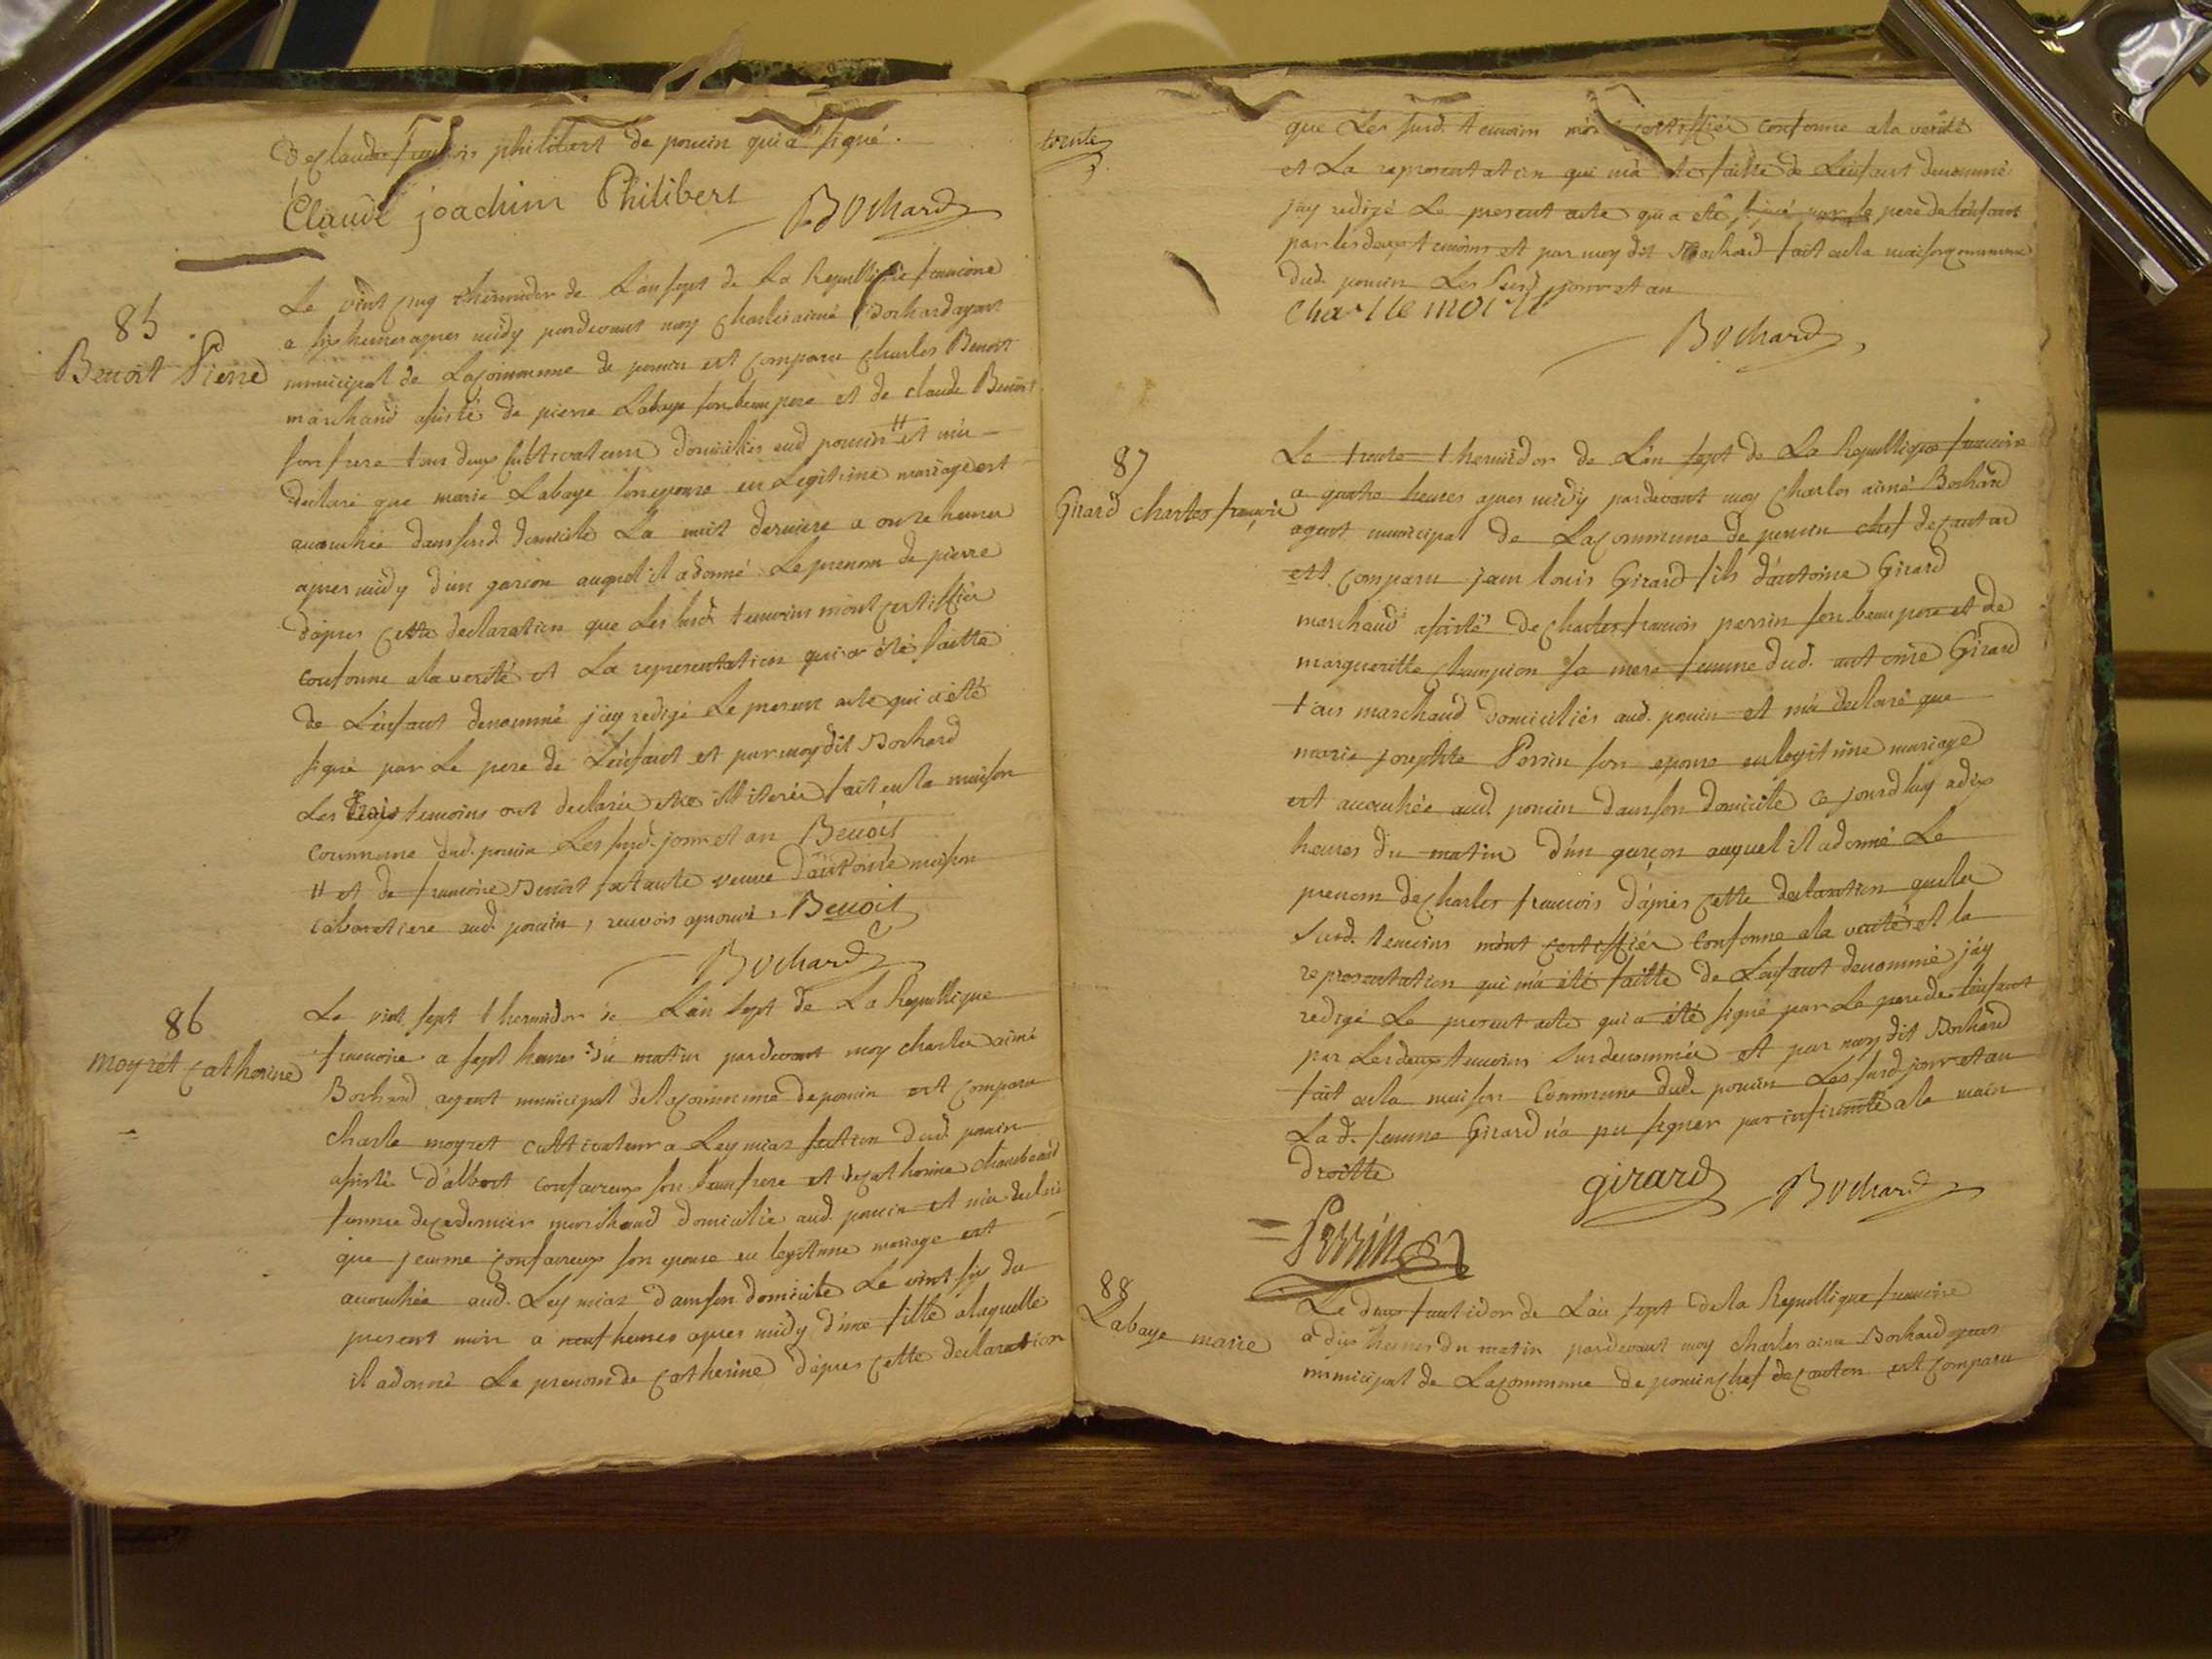 de claude françois philibert de poncin qui a signé.
Claude joachim Philibert
Bochard
85
Benoit Pierre
Le vint cinq thermidor de L'an sept de La Republique francoise
a six heures apres midy pardevant moy Charles aimé Bochard agent
municipal de La commune de poncin est comparu charles Benoit
marchand assisté de pierre Labaye son beau pere et de claude Benoit
son frere tous deux cultivateurs domiciliés aud poncin # et m'a
declaré que marie Labaye son epouse en Legitime mariage est
accouchée dans sond. domicile La nuit derniere a onze heures
apres midy d'un garcon auquel il a donné Le prenom de pierre
d'apres cette declaration que Les susd. temoins m'ont certiffiés
conforme a la verité et La representation qui a été faitte
de L'enfant denommé j'ay redigé Le present acte qui a été
signé par Le pere de L'enfant et par moy dit Bochard
Les trois temoins ont declarés etre illiterés fait en la maison
Commune dud. poncin Les susd. jour et an Benoit
# et de francoise Benoit sa tante veuve d'antoine
cabaretiere aud. poncin, renvois aprouvé, Benoit
Bochard
86
moyret catherine
Le vint sept thermidor de L'an sept de La Republique
francoise a sept heures du matin pardevant moy charles aimé
Bochard agent municipal de la commune de poncin est comparu
charle moyret cultivateur a Leymiaz section dud. poncin
assisté d'albert son beau frere et de catherine
femme de ce dernier marchand domicilié aud. poncin et m'a declaré
que jeanne son epouse en legitime mariage est
accouchée aud. Leymiaz dans son domicile Le vint six du
present mois a neuf heures apres midy d'une fille a laquelle
il a donné Le prenom de catherine d'apres cette declaration
que Les susd. temoins m'ont certiffiés conforme a la verité
et La representation qui m'a eté faitte de L'enfant denommé
j'ay redigé Le present acte qui a eté signé par le pere de l'enfant
par les deux temoins et par moy dit Bochard fait en la maison commune
dud. poncin Les susd. jour et an
Bochard
87
Girard charles francois
Le trente thermidor de L'an sept de La Republique francoise
a quatre heures apres midy pardevant moy Charles aimé Bochard
agent municipal de La commune de poncin chef de canton
est comparu jean louis Girard fils d'antoine Girard
marchand assisté de charles francois perrin son beau pere et de
margueritte Champion sa mere femme dud. antoine Girard
tous marchand domiciliés aud. poncin et m'a declaré que
marie josephte Perrin son epouse en legitime mariage
est accouchée aud. poncin dans son domicile ce jourd'huy a dix
heures du matin d'un garçon auquel il a donné Le
prenom de charles francois d'apres cette declaration que les
susd. temoins m'ont certiffiés conforme a la verité et la
representation qui m'a été faitte de L'enfant denommé j'ay
redigé Le present acte qui a été signé par Le pere de L'enfant
par Les deux temoins susdenommés et par moy dit Bochard
fait en la maison Commune dud. poncin Les susd. jour et an
La d. femme Girard n'a pu signer par infirmité a la main
droitte
girard
Bochard
Perrin
88
Labaye marie
Le deux fructidor de L'an sept de la Republique francoise
a dix heures du matin pardevant moy charles aimé Bochard agent
municipal de La commune de poncin chef de canton est comparu